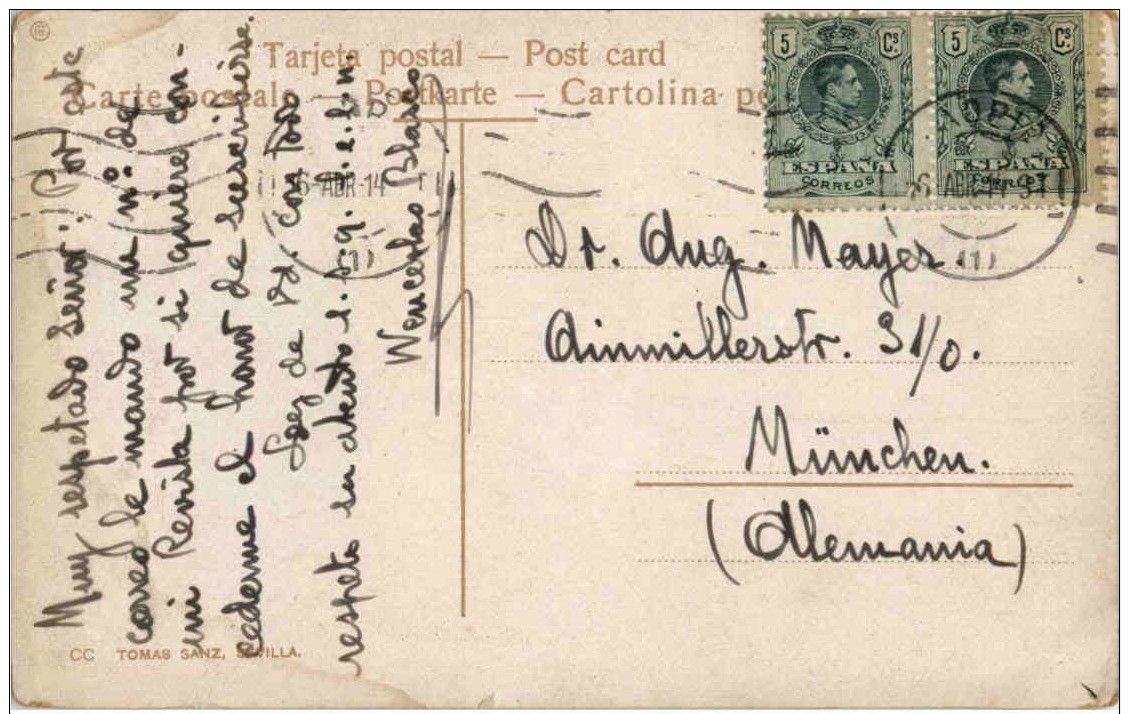 Tarjeta postal — Post card
Carte postale — Postkarte — Cartolina
5 Cs.
5 Cs.
ESPAÑA
ESPAÑA
CORREOS
CORREOS
6-ABR-14
Muy respetado Señor: Por este
correo le mando un nº de
mi Revista por si quiere con-
cederme el honor de suscribirse.
Soy de Vd. con todo
respeto su atento s. s. q. b. s. m.
Wenceslao Blasco
Dr. Aug. Mayer
Ainmillerstr. 31/0.
München.
(Alemania)
CC TOMAS SANZ, SEVILLA.